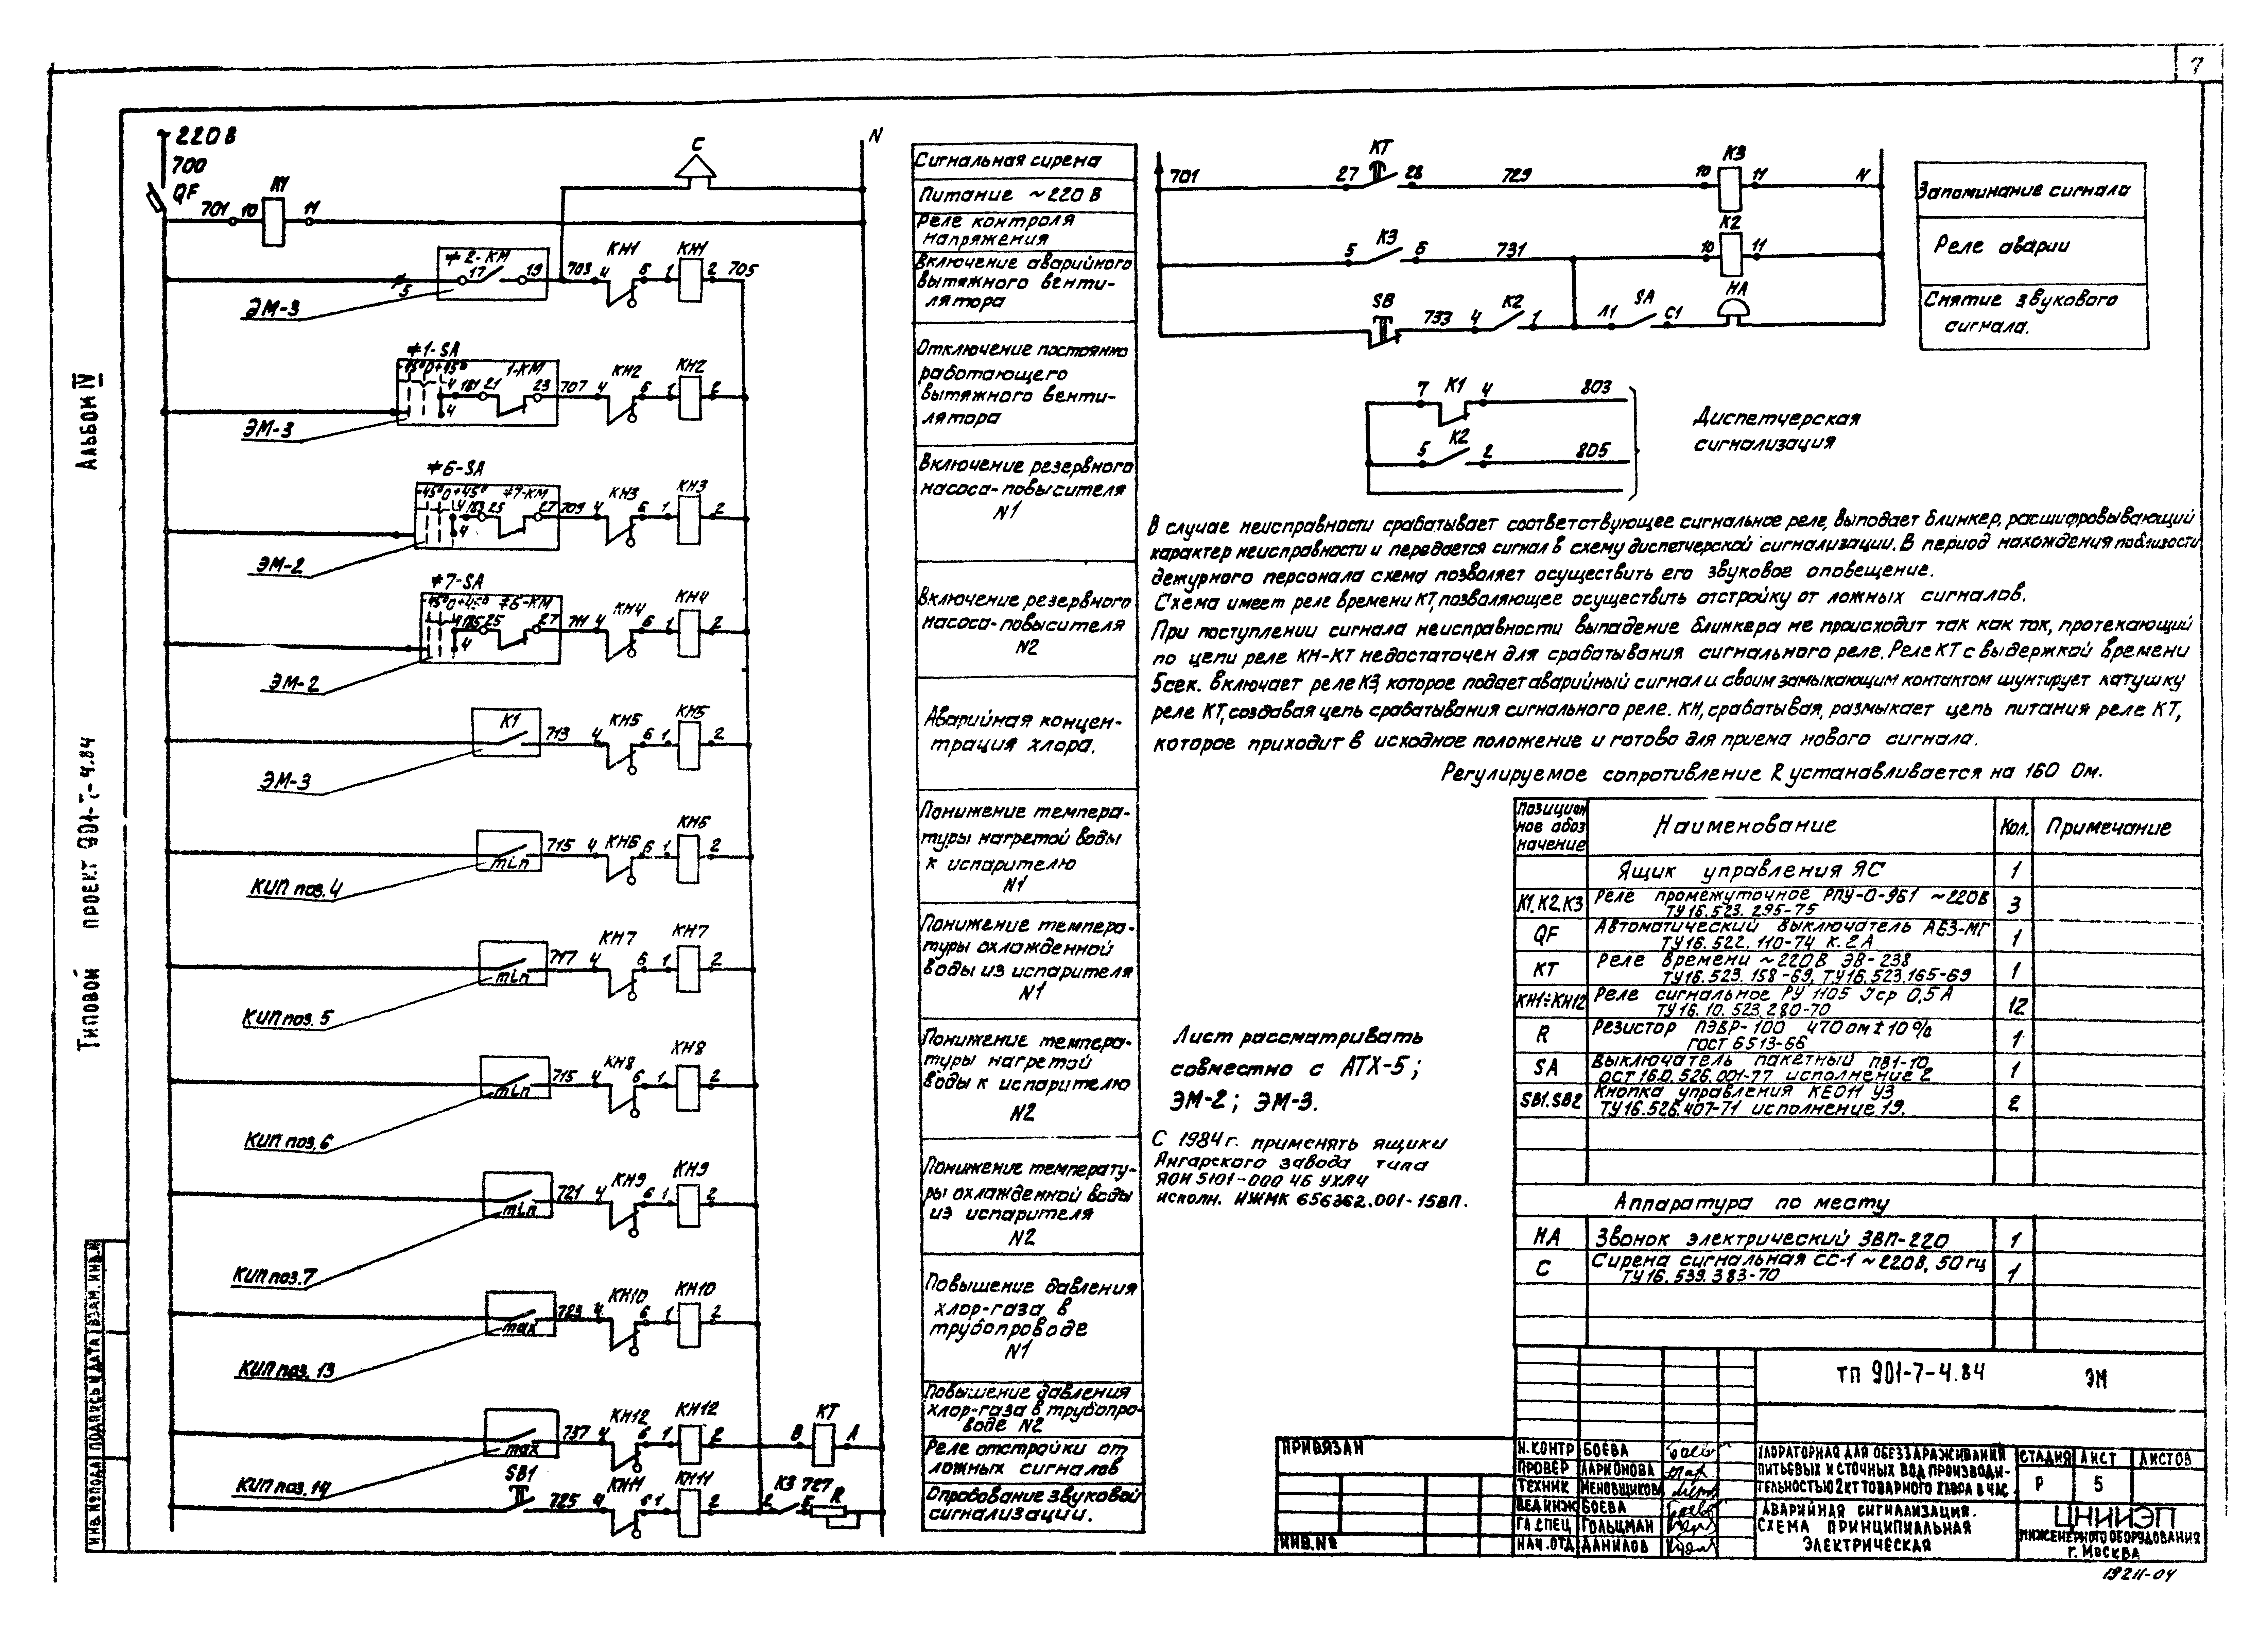 7
Альбом IV
Типовой проект 901-7-4.84
~220 В
700
QF
701 10
К1
11
С
N
≠2-КМ
17 19 703 4
КН1
6 1
КН1
2 705
5
ЭМ-3
≠1-SA
-45° 0 +45°
1-КМ
4 181 21 23 707 4
КН2
6 1
КН2
2
4
ЭМ-3
≠6-SA
-45° 0 +45° ≠7-КМ
4 183 25 27 709 4
КН3
6 1
КН3
2
4
ЭМ-2
≠7-SA
-45° 0 +45° ≠6-КМ
4 185 25 27 711 4
КН4
6 1
КН4
2
4
ЭМ-2
К1
713 4
КН5
6 1
КН5
2
ЭМ-3
min
715 4
КН6
6 1
КН6
2
КИП поз. 4
min
717 4
КН7
6 1
КН7
2
КИП поз. 5
min
715 4
КН8
6 1
КН8
2
КИП поз. 6
min
721 4
КН9
6 1
КН9
2
КИП поз. 7
max
723 4
КН10
6 1
КН10
2
КИП поз. 13
max
737 4
КН12
6 1
КН12
2
В КТ А
КИП поз. 14
SB1
725 4
КН11
6 1
КН11
2
2 К3 727
5 R
Сигнальная сирена
Питание ~220 В
Реле контроля
напряжения
Включение аварийного
вытяжного венти-
лятора
Отключение постоянно
работающего
вытяжного венти-
лятора
Включение резервного
насоса-повысителя
N1
Включение резервного
насоса-повысителя
N2
Аварийная концен-
трация хлора.
Понижение темпера-
туры нагретой воды
к испарителю
N1
Понижение темпера-
туры охлажденной
воды из испарителя
N1
Понижение темпера-
туры нагретой
воды к испарителю
N2
Понижение температу-
ры охлажденной воды
из испарителя
N2
Повышение давления
хлор-газа в
трубопроводе
N1
Повышение давления
хлор-газа в трубопро-
воде N2
Реле отстройки от
ложных сигналов
Опробование звуковой
сигнализации.
701 27 КТ 28 729 10 К3 11 N
5 К3 6 731 10 К2 11
SB 733 4 К2 1 Л1 SA С1 НА
Запоминание сигнала
Реле аварии
Снятие звукового
сигнала.
7 К1 4 803
5 К2 2 805
Диспетчерская
сигнализация
В случае неисправности срабатывает соответствующее сигнальное реле, выподает блинкер, расшифровывающий
характер неисправности и передается сигнал в схему диспетчерской сигнализации. В период нахождения поблизости
дежурного персонала схема позволяет осуществить его звуковое оповещение.
Схема имеет реле времени КТ, позволяющее осуществить отстройку от ложных сигналов.
При поступлении сигнала неисправности выпадение блинкера не происходит так как ток, протекающий
по цепи реле КН-КТ недостаточен для срабатывания сигнального реле. Реле КТ с выдержкой времени
5сек. включает реле К3, которое подает аварийный сигнал и своим замыкающим контактом шунтирует катушку
реле КТ, создавая цепь срабатывания сигнального реле. КН, срабатывая, размыкает цепь питания реле КТ,
которое приходит в исходное положение и готово для приема нового сигнала.
Регулируемое сопротивление R устанавливается на 160 Ом.
Лист рассматривать
совместно с АТХ-5;
ЭМ-2; ЭМ-3.
С 1984 г. применять ящики
Ангарского завода типа
ЯОИ 5101-000 4Б УХЛ4
исполн. ИЖМК 656362.001-15ВП.
Позицион
ное обоз
начение Наименование Кол. Примечание
Ящик управления ЯС 1
К1, К2, К3 Реле промежуточное РПУ-0-961 ~220В 3
ТУ 16.523.295-75
QF Автоматический выключатель А63-МГ 1
ТУ 16.522.110-74 К. 2 А
КТ Реле времени ~220 В ЭВ-238 1
ТУ 16.523.158-69, ТУ 16.523.165-69
КН1÷КН12 Реле сигнальное РУ 1105 Jср 0,5 А 12
ТУ 16.10.523.280-70
R Резистор ПЭВР-100 470 ом ± 10% 1
ГОСТ 6513-66
SA Выключатель пакетный ПВ1-10 1
ОСТ 16.0.526.001-77 исполнение 2
SB1. SB2 Кнопка управления КЕ011 У3 2
ТУ 16.526.407-71 исполнение 19.
Аппаратура по месту
НА Звонок электрический ЗВП-220 1
С Сирена сигнальная СС-1 ~220В, 50 гц 1
ТУ 16.539.383-70
ТП 901-7-4.84 ЭМ
Привязан
Инв.№
Н.контр Боева
Провер Ларионова
Техник Меновщикова
Вед.инж Боева
Гл.спец Гольцман
Нач.отд Данилов
Хлораторная для обеззараживания
питьевых и сточных вод производи-
тельностью 2кг товарного хлора в час
Аварийная сигнализация.
Схема принципиальная
электрическая
Стадия Лист Листов
Р 5
ЦНИИЭП
инженерного оборудования
г. Москва
Инв.№ подл Подпись и дата Взам.инв.№
19211-04